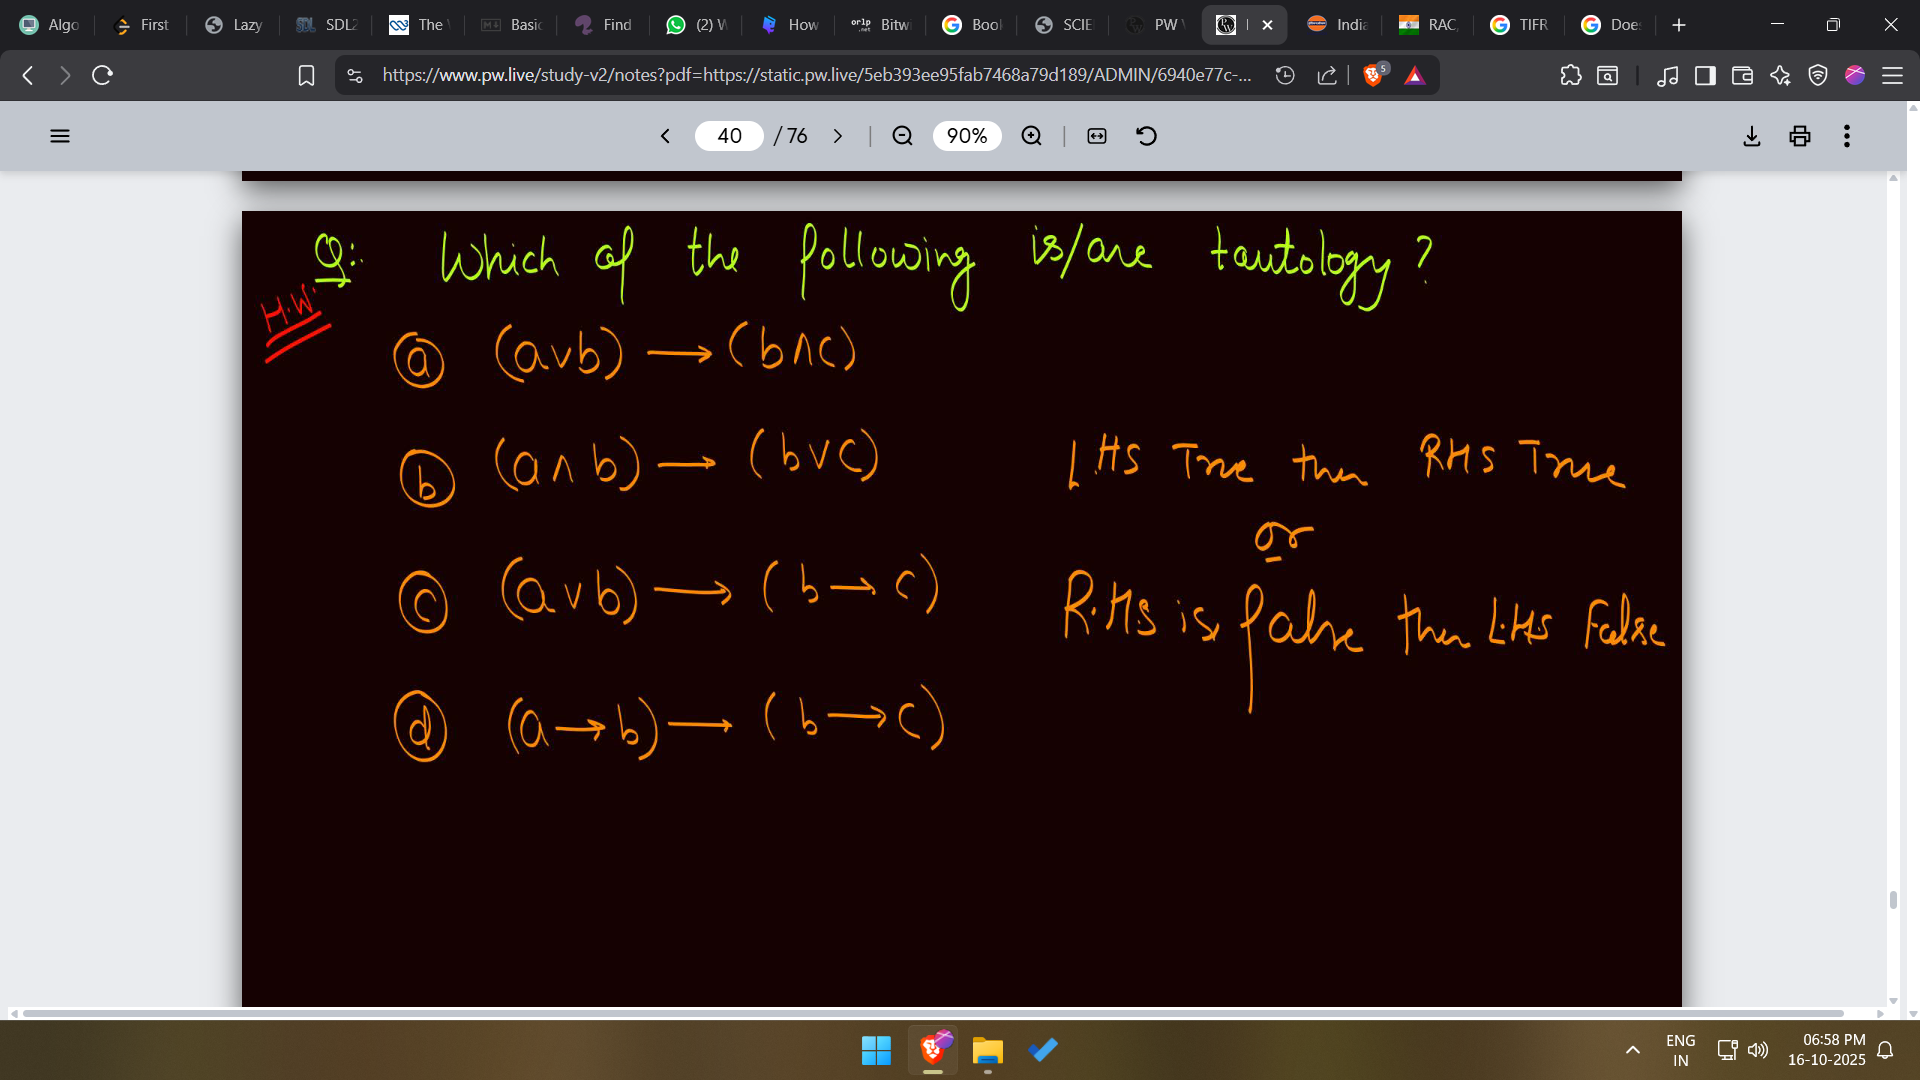 Algo First Lazy SDL2 The Basic Find (2) W How orlp .net Bitwi Book SCIE PW India RAC, TIFR Does
https://www.pw.live/study-v2/notes?pdf=https://static.pw.live/5eb393ee95fab7468a79d189/ADMIN/6940e77c-... 5
40 / 76 90%
Q: Which of the following is/are tautology?
H.W.
ⓐ (a∨b) ⟶ (b∧c)
ⓑ (a∧b) ⟶ (b∨c)
LHS True then RHS True
or
ⓒ (a∨b) ⟶ (b→c)
R.HS is false then L.HS False
ⓓ (a→b) ⟶ (b→c)
ENG
IN
06:58 PM
16-10-2025